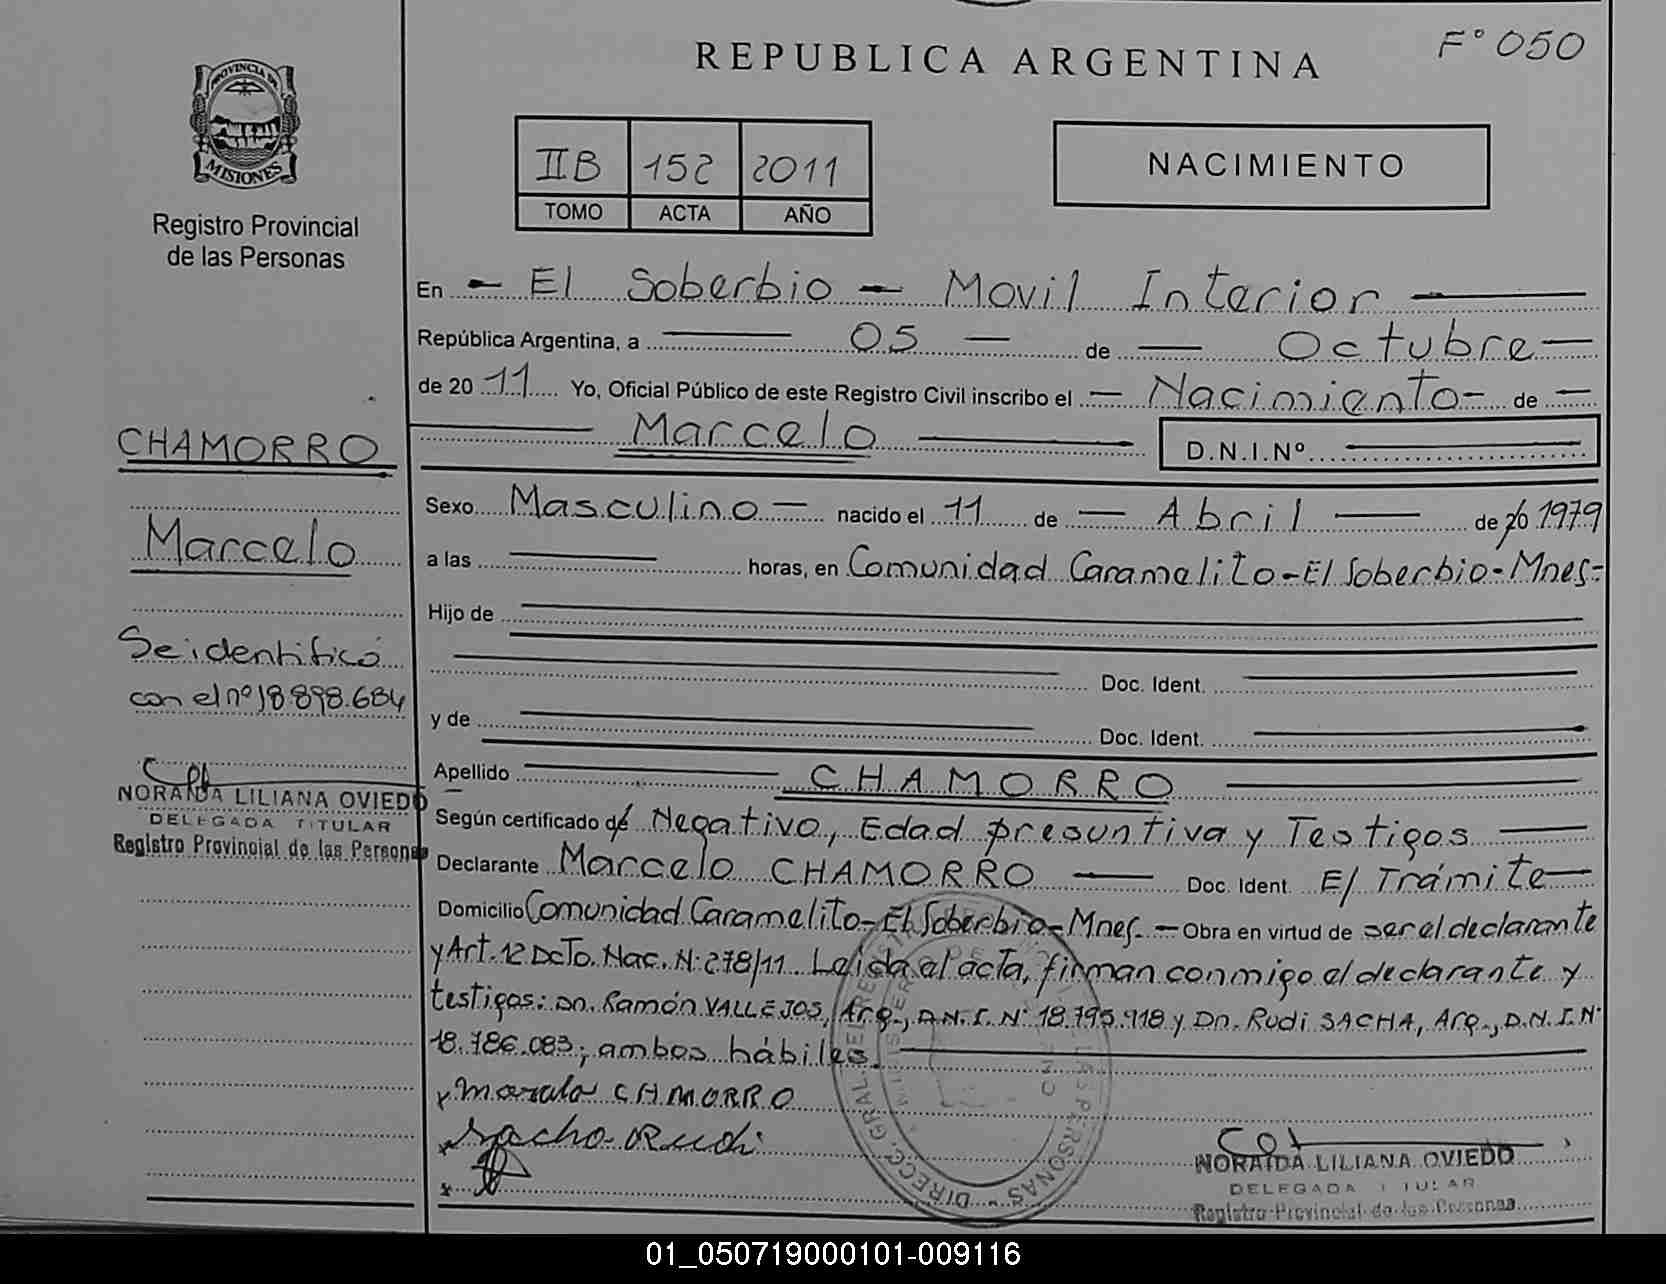 F° 050
REPUBLICA ARGENTINA
PROVINCIA DE
MISIONES
Registro Provincial
de las Personas
IIB 152 2011
TOMO ACTA AÑO
NACIMIENTO
En - El Soberbio - Movil Interior
República Argentina, a 05 de Octubre
de 2011 Yo, Oficial Público de este Registro Civil inscribo el Nacimiento de
Marcelo D.N.I.Nº
CHAMORRO
Marcelo
Se identificó
con el nº 18.898.684
NORAIDA LILIANA OVIEDO
DELEGADA TITULAR
Registro Provincial de las Personas
Sexo Masculino nacido el 11 de Abril de 1979
a las horas, en Comunidad Caramelito - El Soberbio - Mnes.
Hijo de
Doc. Ident.
y de
Doc. Ident.
Apellido CHAMORRO
Según certificado de Negativo, Edad presuntiva y Testigos
Declarante Marcelo CHAMORRO Doc. Ident. E/ Trámite
Domicilio Comunidad Caramelito - El Soberbio - Mnes. - Obra en virtud de ser el declarante
y Art. 12 Dcto. Nac. N: 278/11. Leída el acta, firman conmigo el declarante y
testigos: Dn. Ramón VALLEJOS, Arg., D.N.I. N° 18.795.918 y Dn. Rudi SACHA, Arg., D.N.I. N°
18.786.083; ambos hábiles.
x Marcelo CHAMORRO
x Sacha Rudi
x
DIRECC. GRAL. DEL REGISTRO DE LAS PERSONAS
NORAIDA LILIANA OVIEDO
DELEGADA TITULAR
Registro Provincial de las Personas
01_050719000101-009116